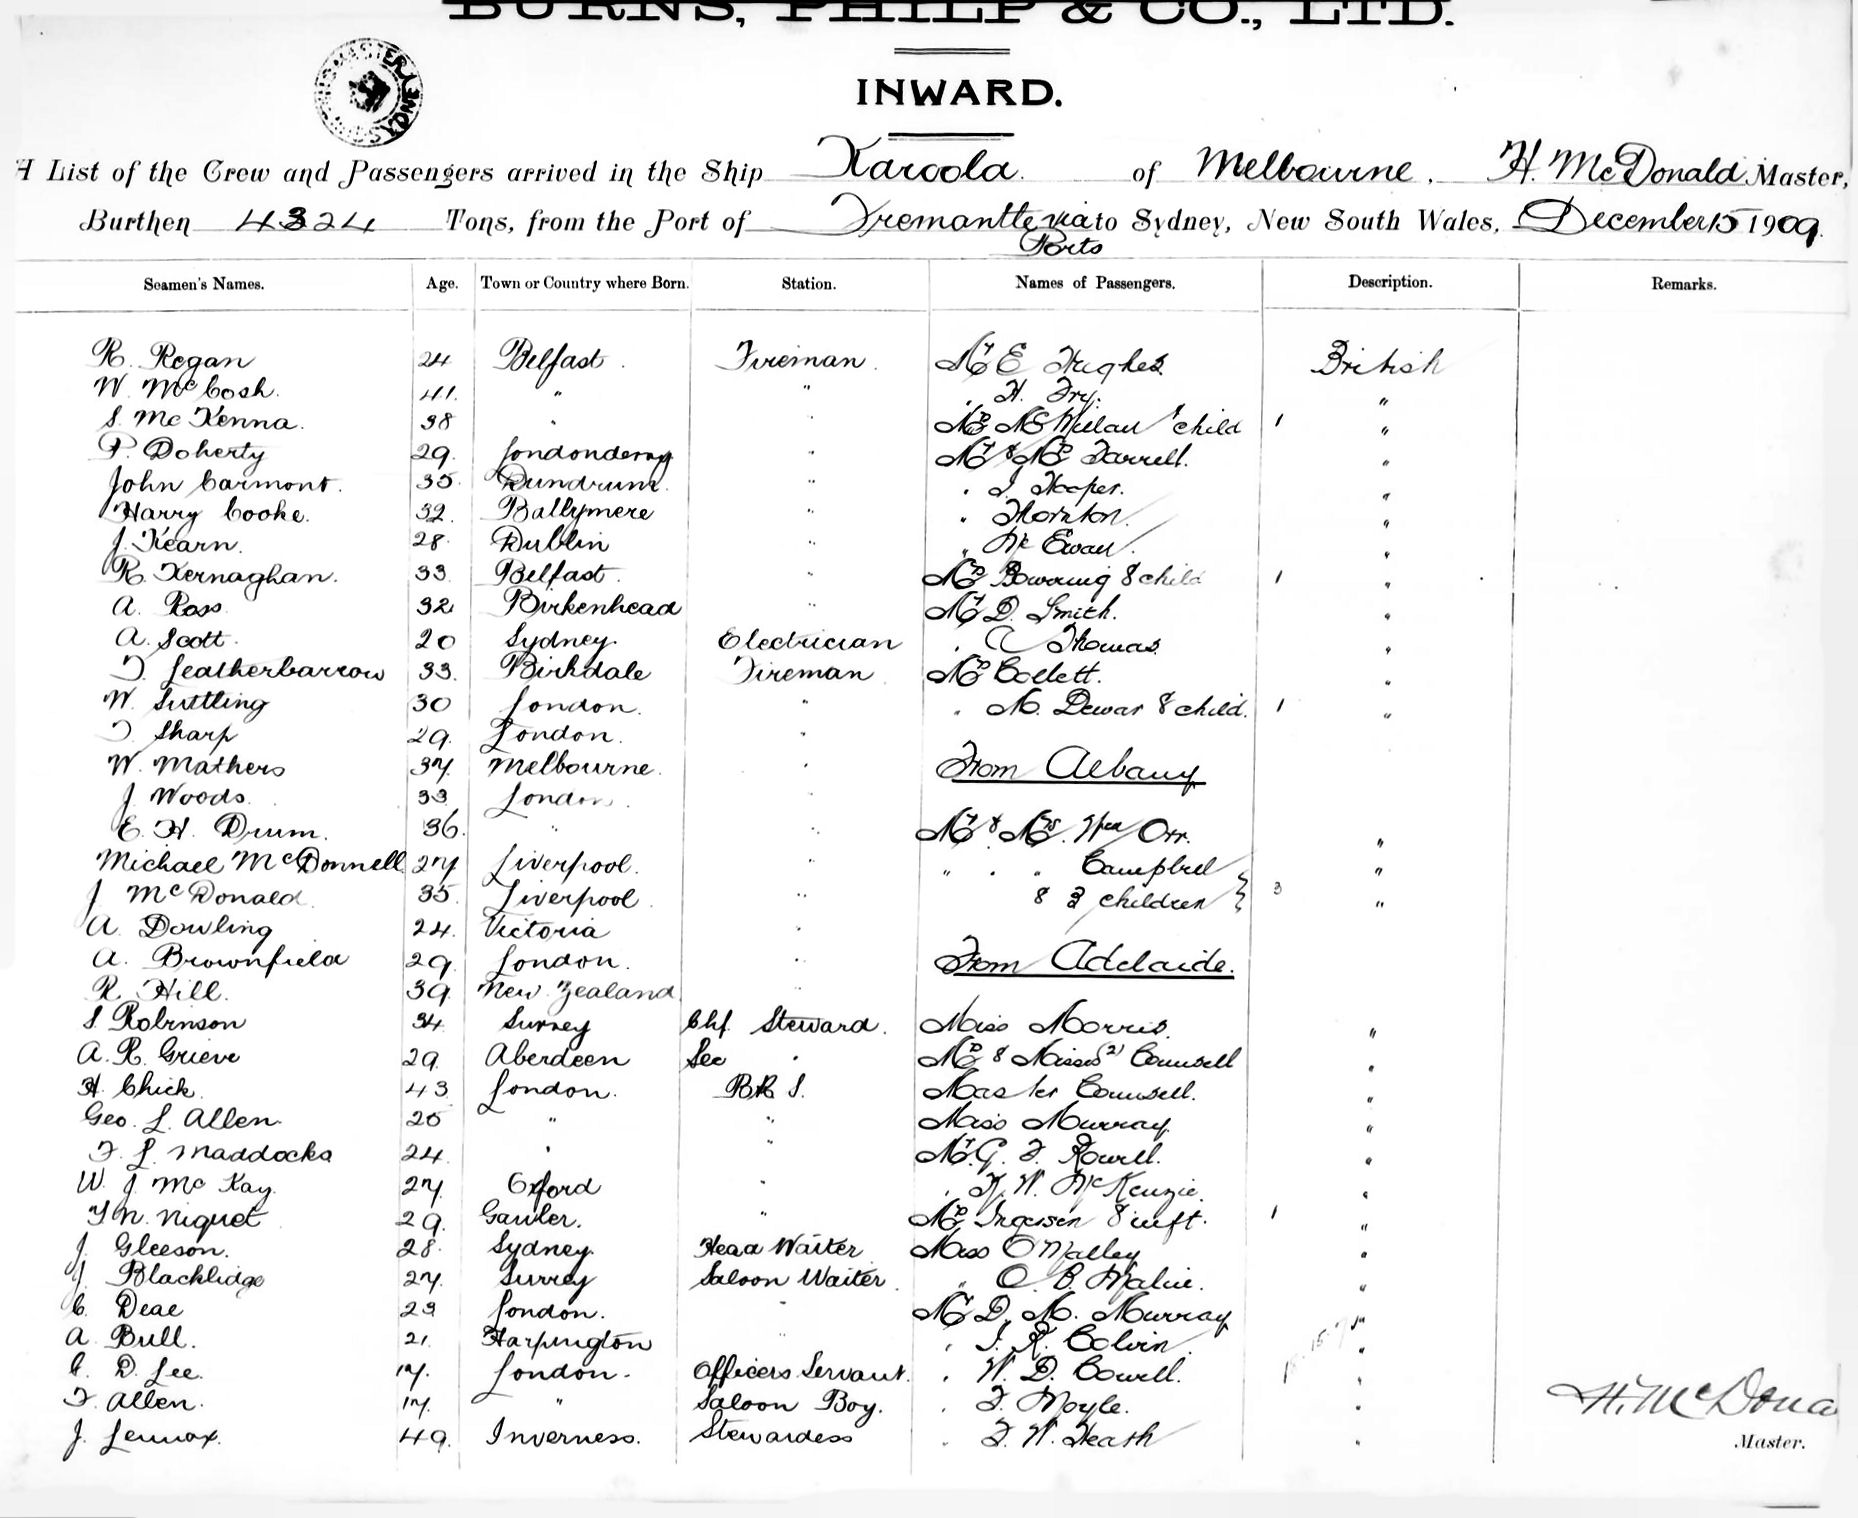 BURNS, PHILP & CO., LTD.
INWARD.
A List of the Crew and Passengers arrived in the Ship Karoola. of Melbourne, H. McDonald Master,
Burthen 4324 Tons, from the Port of Fremantle via to Sydney, New South Wales, December 15 1909.
Ports
Seamen's Names. Age. Town or Country where Born. Station. Names of Passengers. Description. Remarks.
R. Regan 24 Belfast. Fireman. Mr E Hughes British
W. McCosh. 41. " " . H. Fry. "
S. McKenna. 38 " " Mrs McMillan & child 1 "
P. Doherty 29. Londonderry " Mr & Mrs Farrell. "
John Carmont. 35. Dundrum. " . J. Hooper. "
Harry Cooke. 32. Ballymere " " Thornton. "
J. Kearn. 28. Dublin " " McEwan. "
R. Kernaghan. 33. Belfast. " Mrs Bowring & child 1 "
A. Ross 32 Birkenhead " Mr D. Smith. "
A. Scott. 20 Sydney. Electrician . C Thomas. "
T. Leatherbarrow 33. Birkdale Fireman Mrs Collett. "
W. Suttling 30 London. " . M. Dewar & child. 1 "
T. Sharp 29. London. "
W. Mathers 37. Melbourne. " From Albany
J. Woods. 33 London. "
E. H. Drum. 36. " " Mr & Mrs Wm Orr. "
Michael McDonnell 27 Liverpool. " " " " Campbell "
J. McDonald. 35. Liverpool. " & 3 children } 3 "
A. Dowling 24. Victoria "
A. Brownfield 29. London. " From Adelaide.
R. Hill. 39. New Zealand "
S. Robinson 34. Surrey Chf. Steward. Miss Morris. "
A. R. Grieve 29. Aberdeen Sec " Mrs & Misses (2) Counsell "
H. Chick. 43. London. B.R S. Master Counsell. "
Geo. L. Allen. 25 " " Miss Murray. "
F. L. Maddocks 24. " " Mr. G. F. Rowell. "
W. J. McKay. 27. Oxford " . K. W. McKenzie. "
29. Gawler. " Mrs & inft. 1 "
J. Gleeson. 28. Sydney. Head Waiter Miss O'Malley "
J. Blacklidge 27. Surrey Saloon Waiter. " "
C. Deae 23 London. " Mr D. M. Murray "
A. Bull. 21. Harpington " . J. R. Colvin. "
C. D. Lee. 17. London. Officers Servant. . W. D. Cowell. "
F. Allen. 17. " Saloon Boy. . F. Moyle. "
J. Lennox. 49. Inverness. Stewardess . F. W. Heath "
H. McDona
Master.